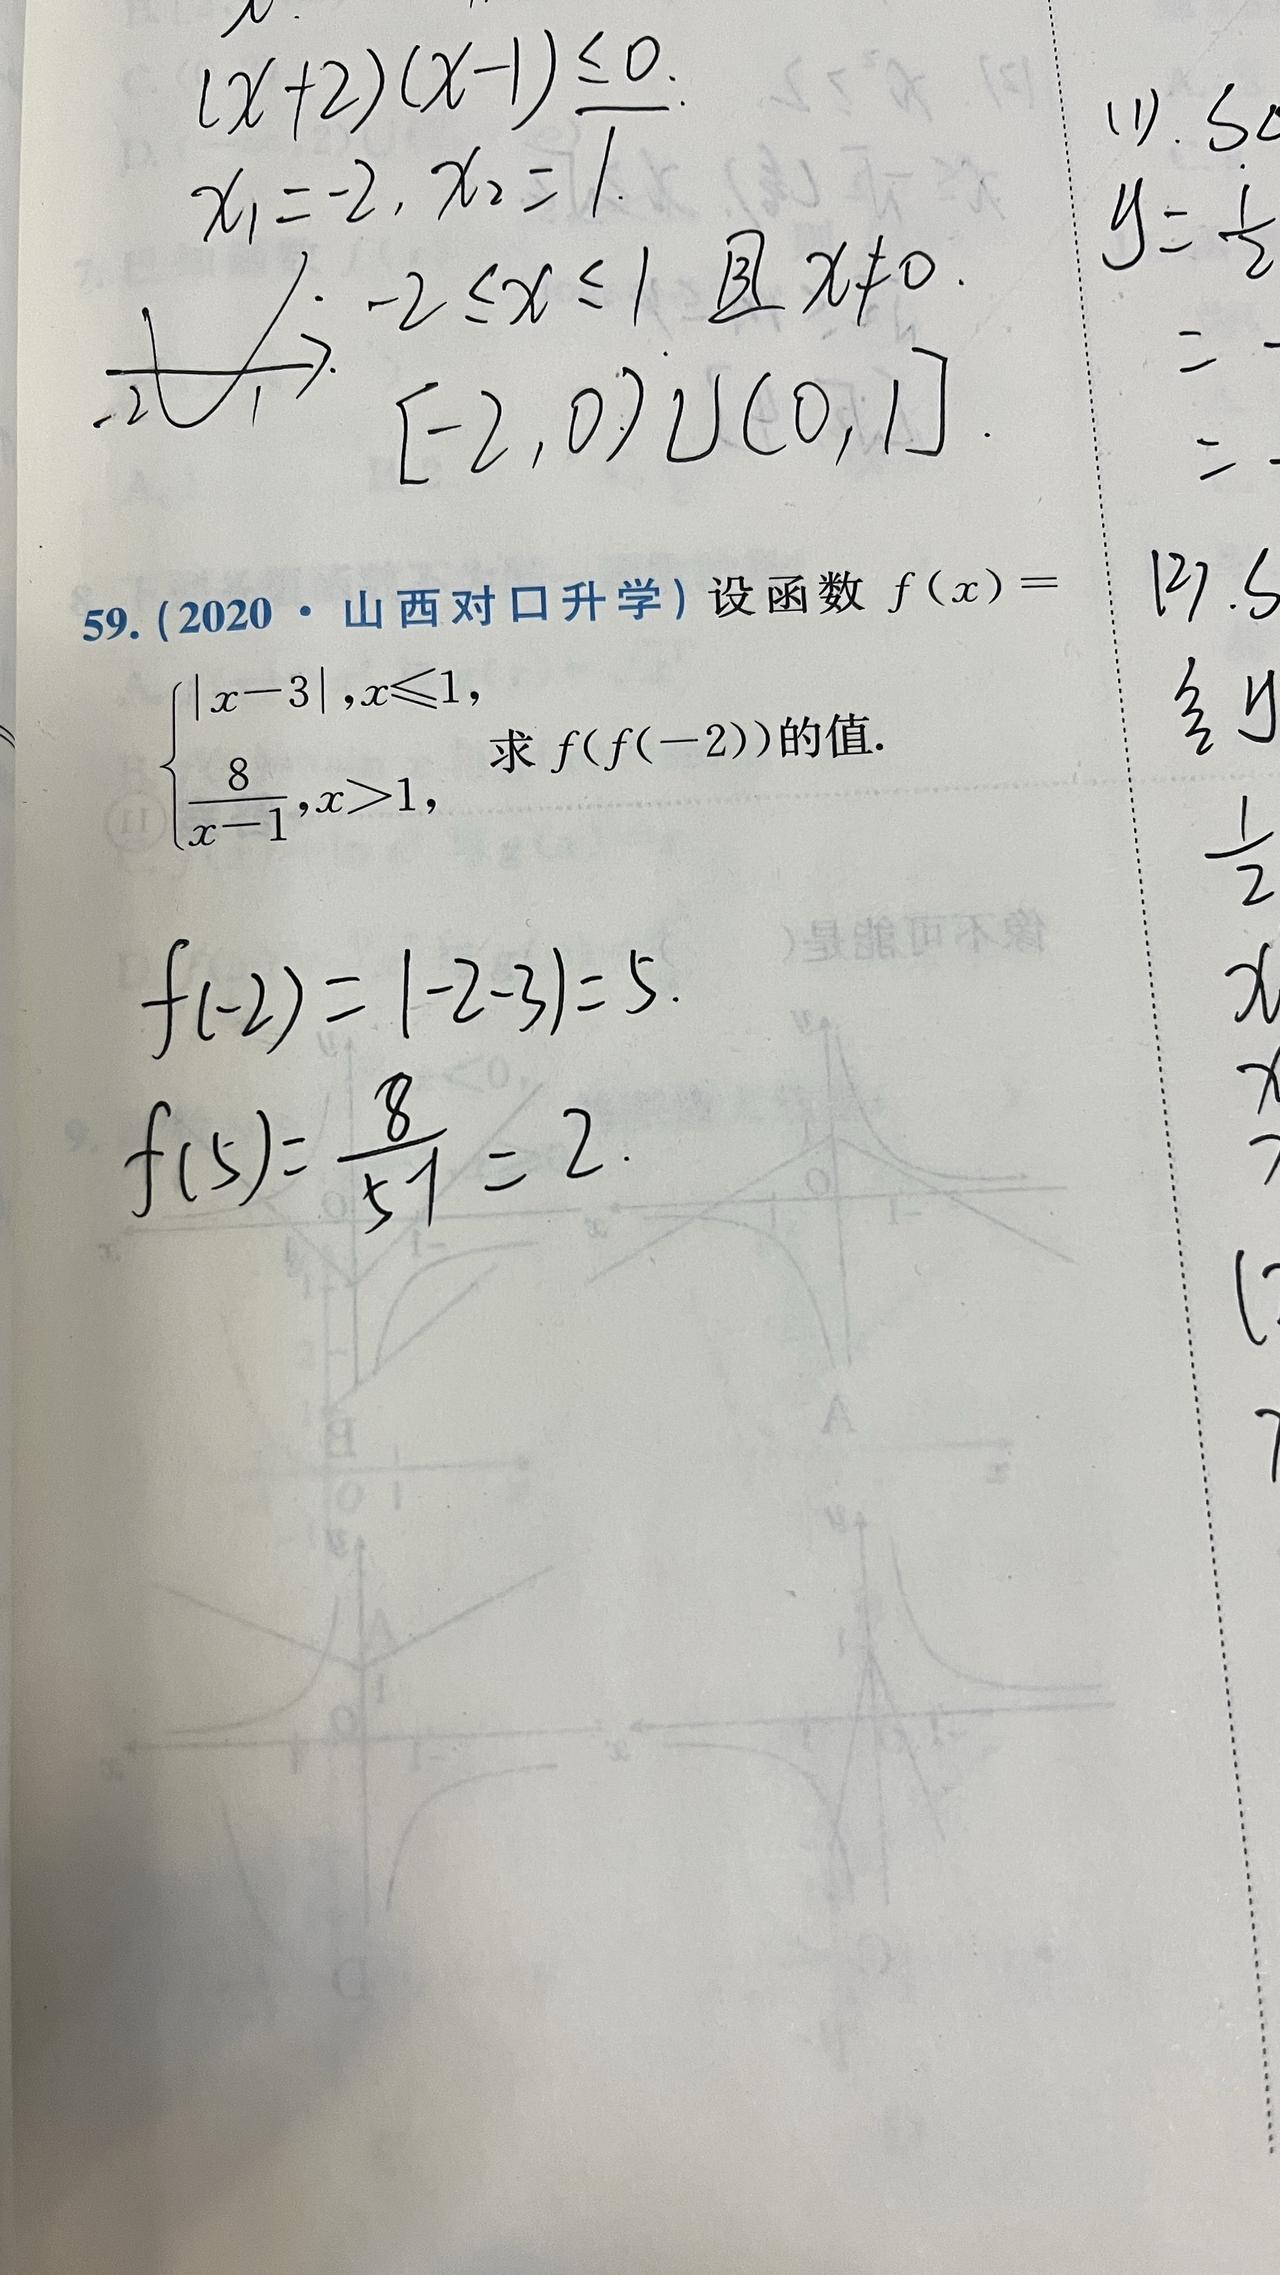 (x+2)(x-1)≤0.
x₁=-2, x₂=1.
-2≤x≤1 且 x≠0.
-2 1
[-2,0)∪(0,1].
59.(2020·山西对口升学)设函数 f(x)=
{|x-3|,x≤1,
8/(x-1),x>1,
求 f(f(-2))的值.
f(-2)=|-2-3|=5.
f(5)=8/(5-1)=2.
(1).
y=1/2
=
=
(2).
1/2
x